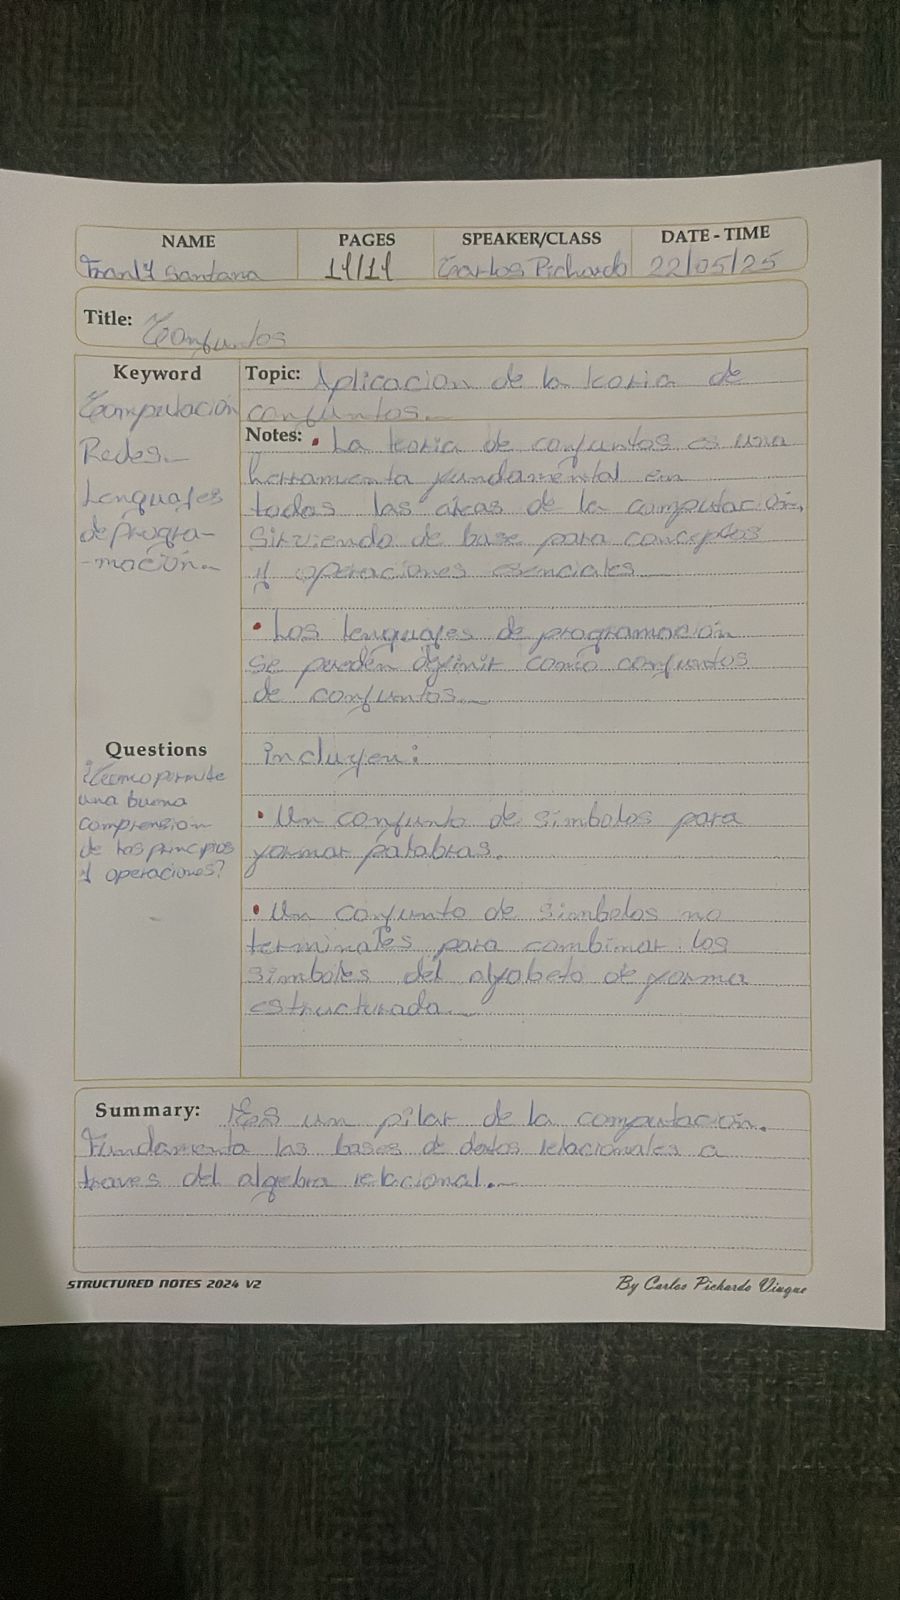 NAME PAGES SPEAKER/CLASS DATE - TIME
Franly Santana 11/11 Carlos Pichardo 22/05/25
Title: Conjuntos
Keyword
Computación
Redes.
Lenguajes
de progra-
-mación.
Topic: Aplicacion de la teoria de
conjuntos.
Notes: • La teoria de conjuntos es una
herramienta fundamental en
todas las áreas de la computación,
Sirviendo de base para conceptos
y operaciones esenciales
• Los lenguajes de programación
se pueden definir como conjuntos
de conjuntos.
Questions
¿Como permite
una buena
comprensión
de los principios
y operaciones?
incluyen:
• Un conjunto de simbolos para
formar palabras.
• Un conjunto de simbolos no
terminales para combinar los
simboles del alfabeto de forma
estructurada.
Summary: Es un pilar de la computación.
Fundamenta las bases de datos relacionales a
traves del algebra relacional.
STRUCTURED NOTES 2024 V2
By Carlos Pichardo Viuque